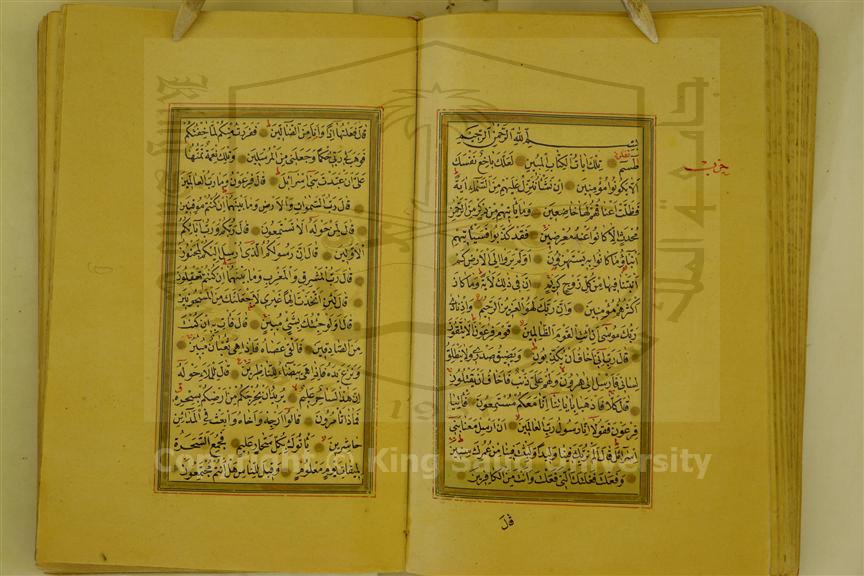 بسم الله الرحمن الرحيم
طسم تلك ايات الكتاب المبين لعلك باخع نفسك
الا يكونوا مؤمنين ان نشأ ننزل عليهم من السماء اية
فظلت اعناقهم لها خاضعين وما يأتيهم من ذكر من الرحمن
محدث الا كانوا عنه معرضين فقد كذبوا فسيأتيهم
انباؤا ما كانوا به يستهزؤن اولم يروا الى الارض كم
انبتنا فيها من كل زوج كريم ان في ذلك لاية وما كان
اكثرهم مؤمنين وان ربك لهو العزيز الرحيم واذ نادى
ربك موسى ان ائت القوم الظالمين قوم فرعون الا يتقون
قال رب انى اخاف ان يكذبون ويضيق صدرى ولا ينطلق
لسانى فارسل الى هرون ولهم على ذنب فاخاف ان يقتلون
قال كلا فاذهبا باياتنا انا معكم مستمعون فأتيا
فرعون فقولا انا رسول رب العالمين ان ارسل معنا بنى
اسرائل قال الم نربك فينا وليدا ولبثت فينا من عمرك سنين
وفعلت فعلتك التى فعلت وانت من الكافرين
قال
حزب
قال فعلتها اذا وانا من الضالين ففررت منكم لما خفتكم
فوهب لى ربى حكما وجعلنى من المرسلين وتلك نعمة تمنها
على ان عبدت بنى اسرائل قال فرعون وما رب العالمين
قال رب السموات والارض وما بينهما ان كنتم موقنين
قال لمن حوله الا تستمعون قال ربكم ورب ابائكم
الاولين قال ان رسولكم الذى ارسل اليكم لمجنون
قال رب المشرق والمغرب وما بينهما ان كنتم تعقلون
قال لئن اتخذت الها غيرى لاجعلنك من المسجونين
قال اولو جئتك بشئ مبين قال فأت به ان كنت
من الصادقين فالقى عصاه فاذا هى ثعبان مبين
ونزع يده فاذا هى بيضاء للناظرين قال للملا حوله
ان هذا لساحر عليم يريد ان يخرجكم من ارضكم بسحره
فماذا تأمرون قالوا ارجه واخاه وابعث فى المدائن
حاشرين يأتوك بكل سحار عليم فجمع السحرة
لميقات يوم معلوم وقيل للناس هل انتم مجتمعون
Copyright © King Saud University